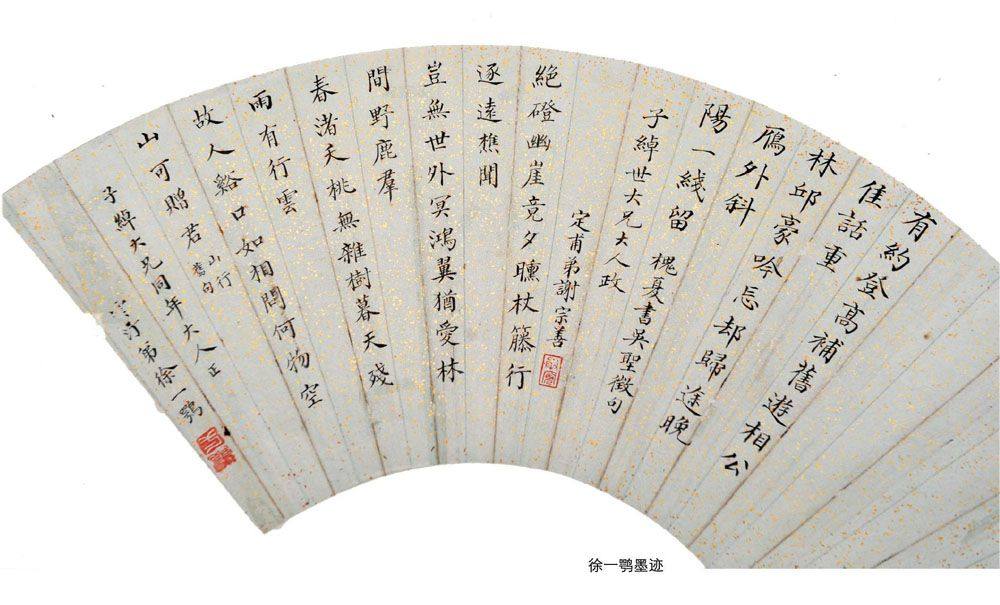 有約登高補舊遊相公
佳話重
林邱豪吟忘却歸途晚
鴈外斜
陽一綫留
槐夏書吳聖徵句
子綽世大兄大人政
定甫弟謝宗善
絕磴幽崖竟夕曛杖籐行
逐遠樵聞
豈無世外冥鴻翼猶愛林
間野鹿羣
春渚夭桃無雜樹暮天殘
雨有行雲
故人谿口如相問何物空
山可贈君
山行
舊句
子綽大兄同年大人正
汀弟徐一鶚
徐一鹗墨迹